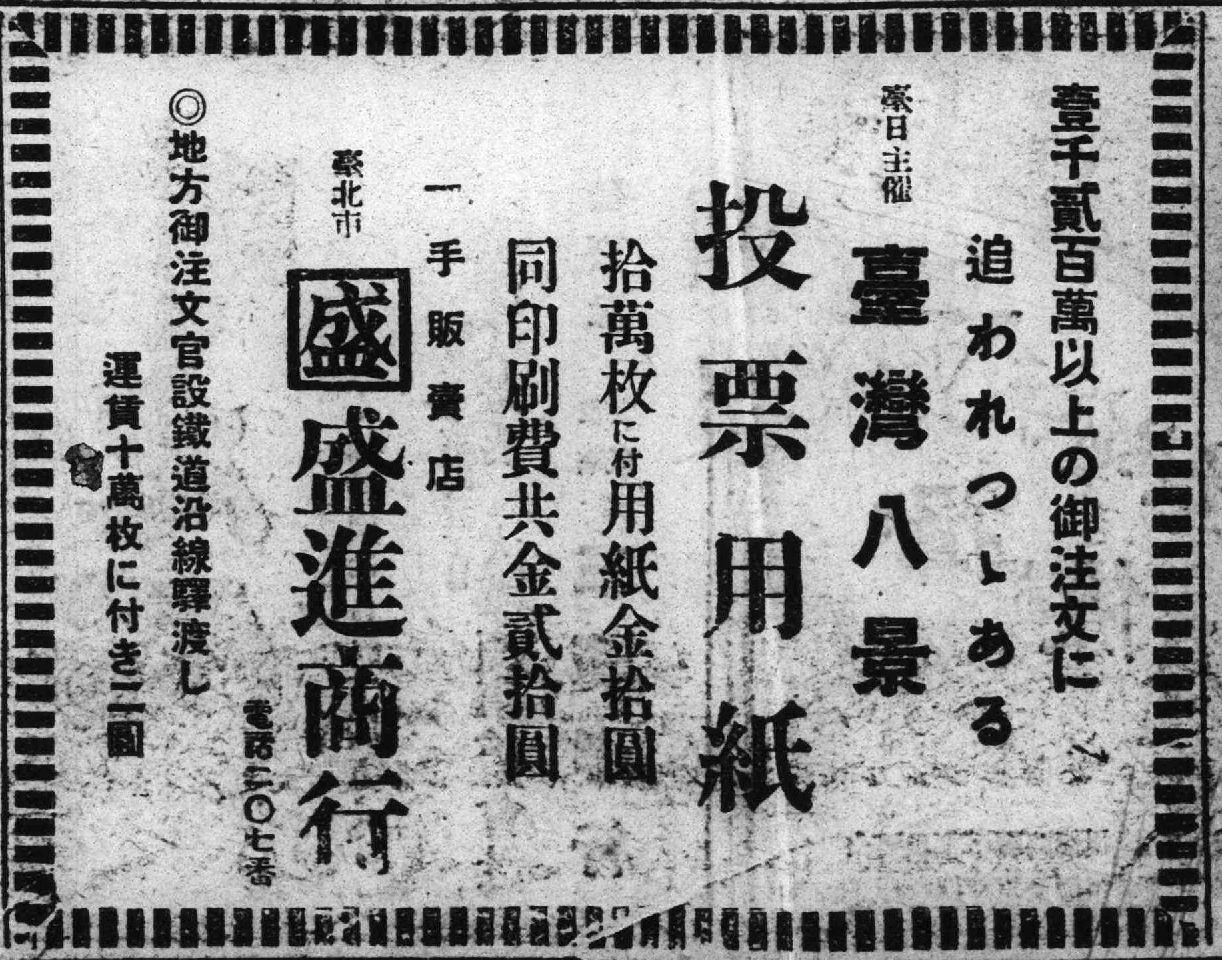 壹千貳百萬以上の御注文に
追われつゝある
臺日主催
臺灣八景
投票用紙
拾萬枚に付用紙金拾圓
同印刷費共金貳拾圓
一手販賣店
臺北市
盛
盛進商行
電話二〇七番
◎地方御注文官設鐵道沿線驛渡し
運賃十萬枚に付き二圓